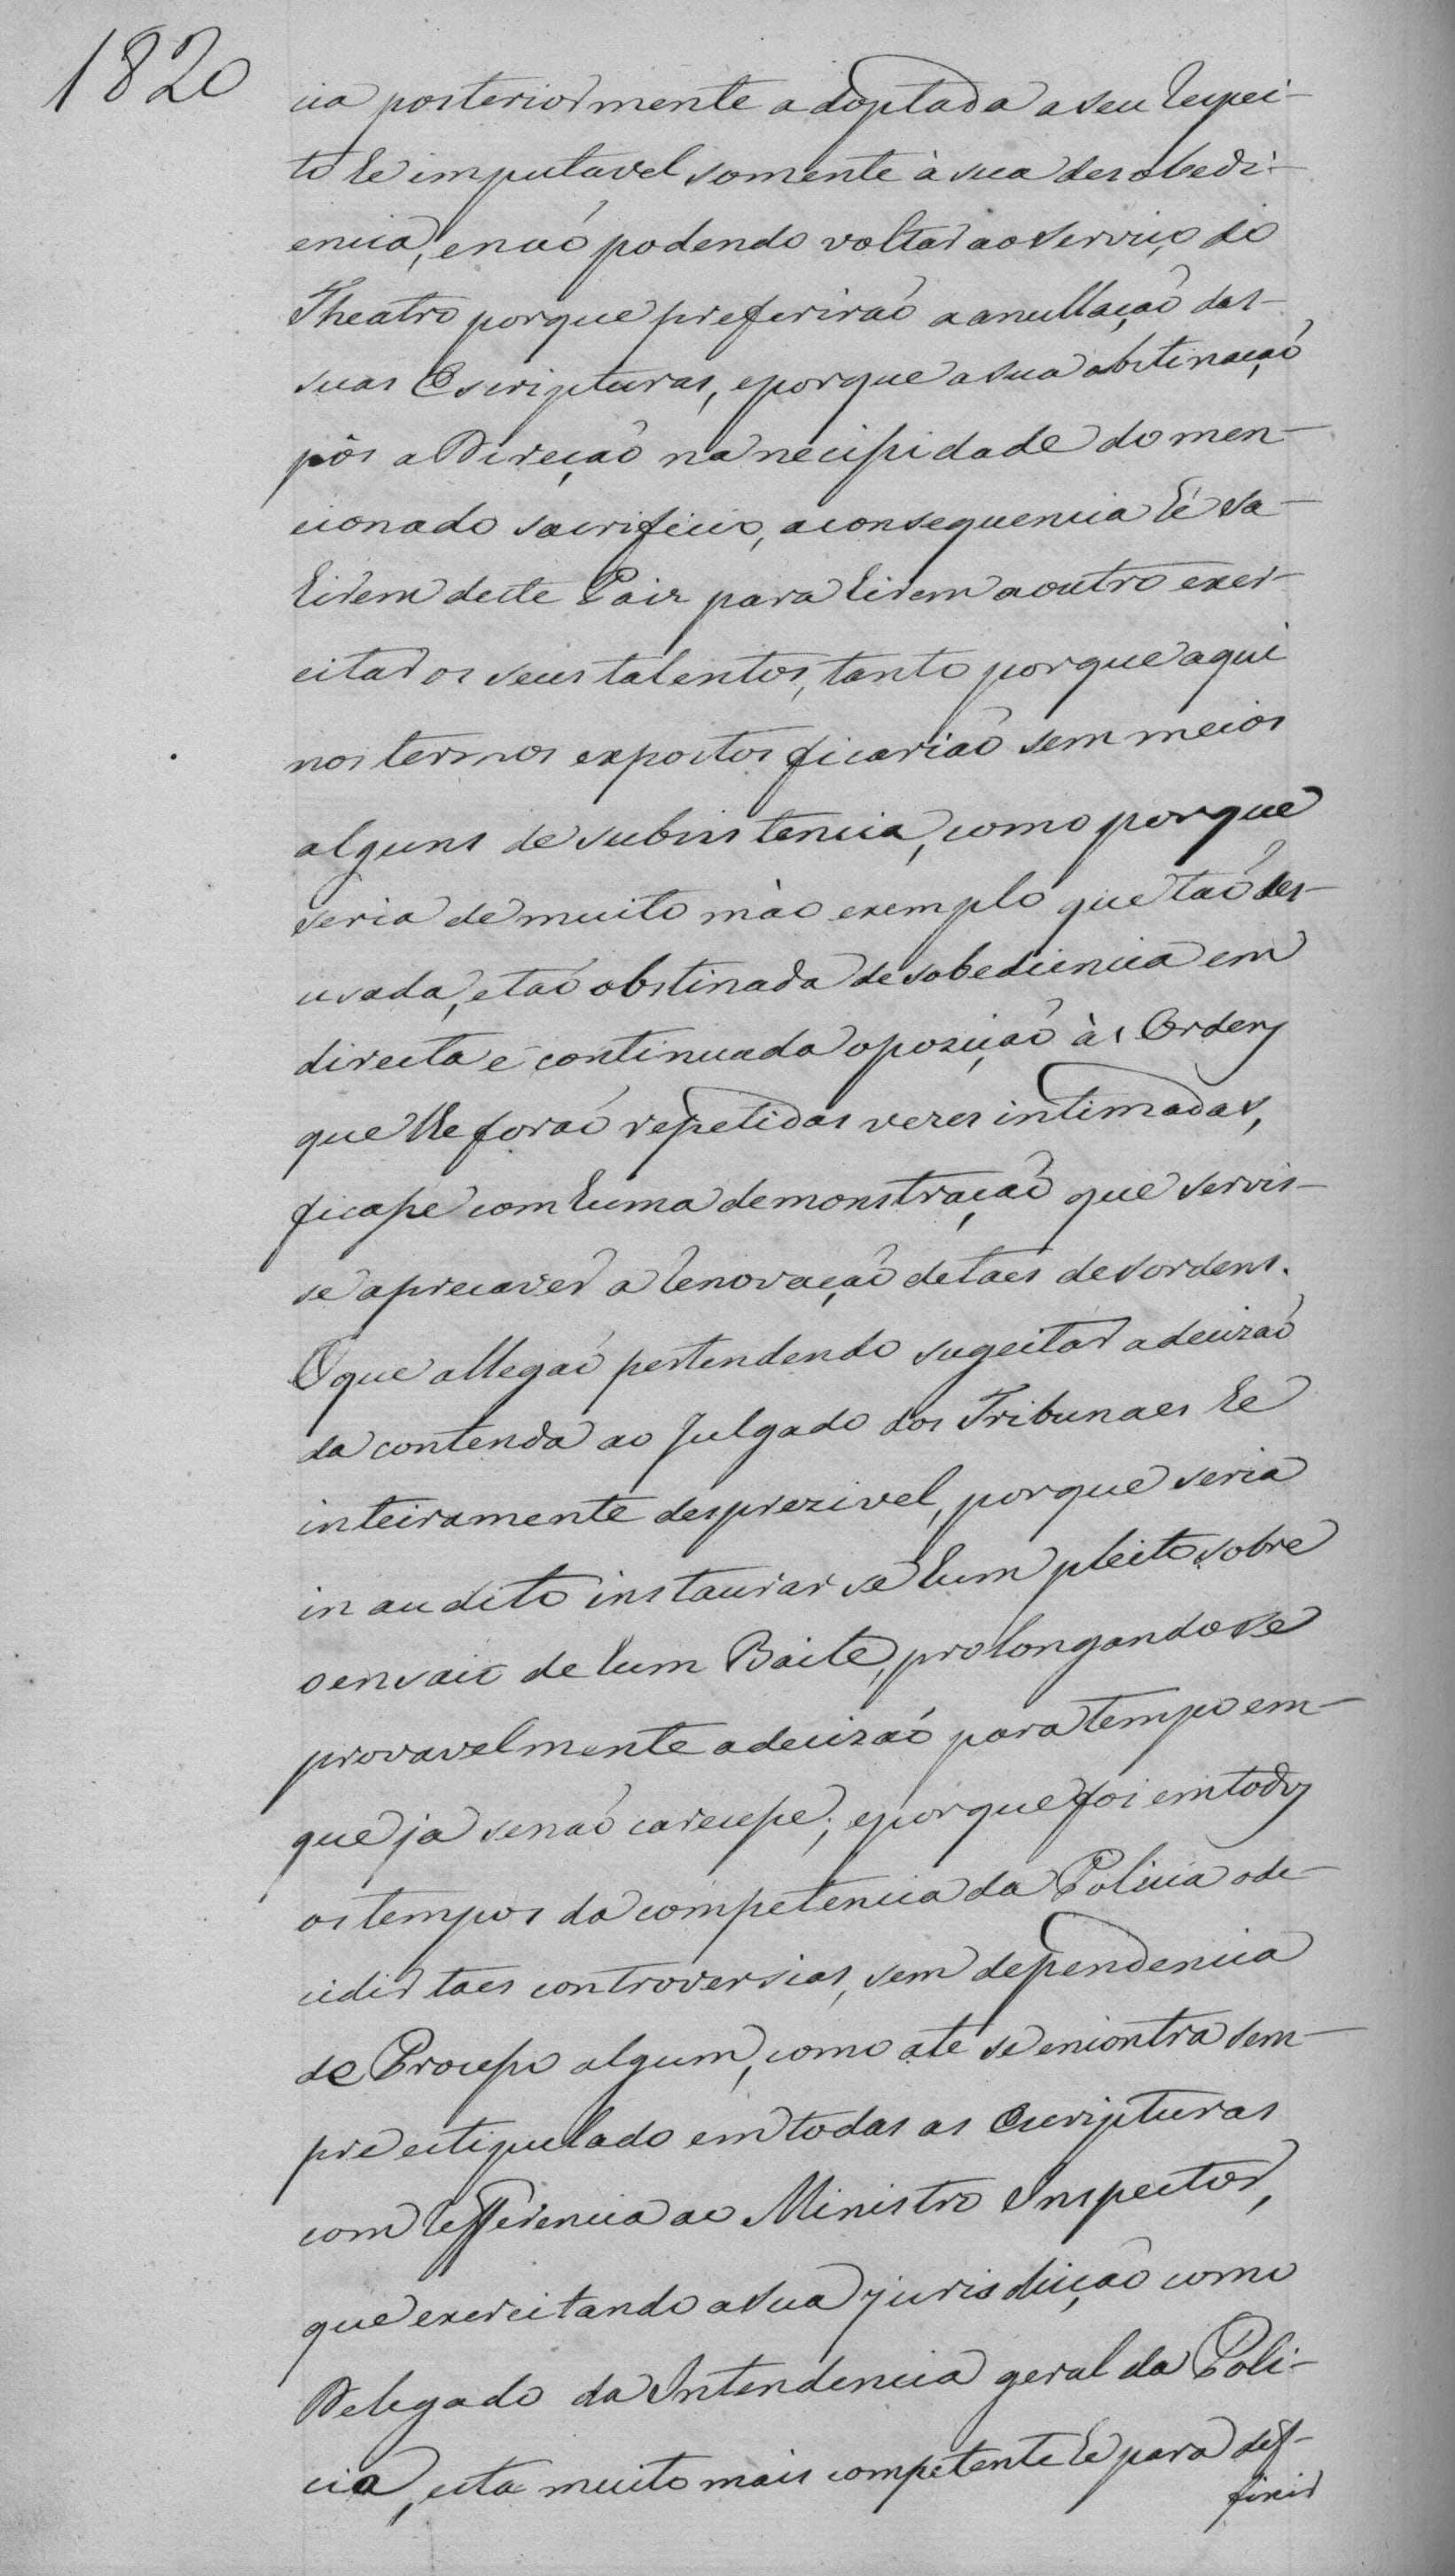 1820
cia posteriormente adoptada a seu respei-
to he imputavel somente à sua desobedi-
encia, e naó podendo voltar ao serviço do
Theatro porque preferiraó a anullaçaó das
suas Escripturas, e porque a sua obstinaçaó
pôs a Direçaó na necessidade do men-
cionado sacrificio, a consequencia hé sa-
hirem deste Paiz para hirem a outro exer-
citar os seus talentos, tanto porque aqui
nos termos expostos ficariaó sem meios
alguns de subsistencia, como porque
seria de muito máo exemplo que taó des-
usada, e taó obstinada desobediencia em
directa e continuada oposiçaó ás Ordens
que lhe foraó repetidas vezes intimadas,
ficasse com huma demonstraçaó que servis-
se a precaver a renovaçaó de taes desordens.
O que allegaó pertendendo sugeitar a decizaó
da contenda ao Julgado dos Tribunaes he
inteiramente desprezivel, porque seria
inaudito instaurar se hum pleito sobre
o ensaio de hum Baile, prolongando se
provavelmente a decizaó para tempo em-
que ja se naó carecesse; e porque foi em todos
os tempos da competencia da Policia o de-
cidir taes controversias, sem dependencia
de Processo algum, como até se encontra sem-
pre estipulado em todas as Escripturas
com refferencia ao Ministro Inspector,
que exercitando a sua jurisdicçaó como
Delegado da Intendencia geral da Poli-
cia, esta muito mais competente he para def-
finir